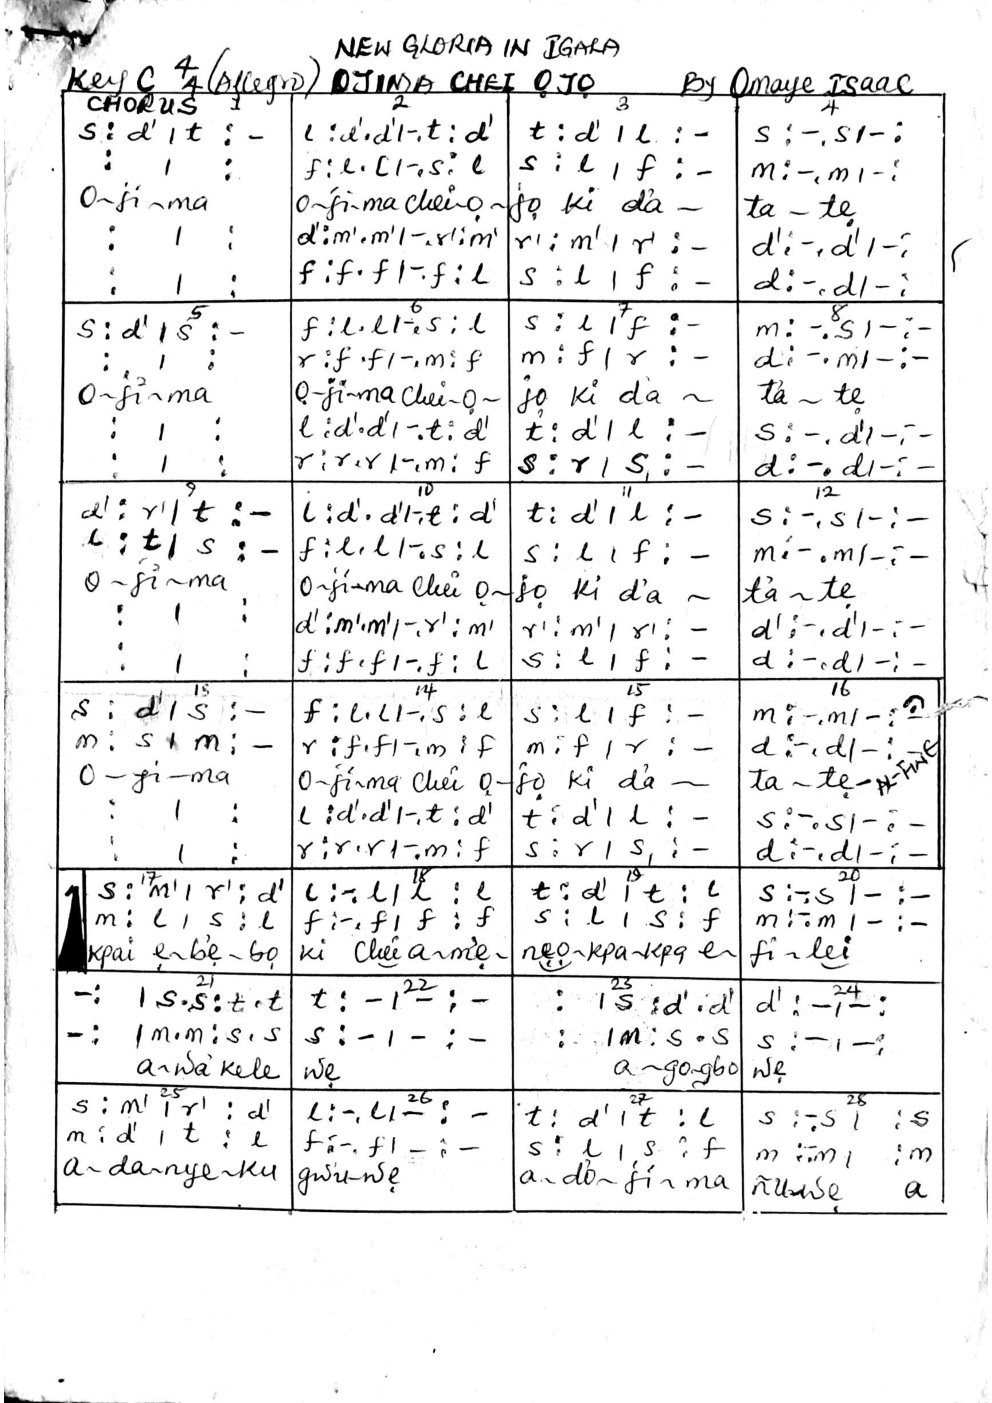 NEW GLORIA IN IGALA
Key C 4/4 (Allegro) OJIMA CHEI ỌJỌ By Omaye ISAAC
CHORUS 1 2 3 4
s : d' | t : – l : d'.d' | –.t : d' t : d' | l : – s : –.s | – :
: | : f : l.l | –.s : l s : l | f : – m : –.m | – :
O~ji~ma O~ji~ma chei ọ~jọ ki da ~ ta ~ tẹ
: | : d' : m'.m' | –.r' : m' r' : m' | r' : – d' : –.d' | – :
: | : f : f.f | –.f : l s : l | f : – d : –.d | – :
5 6 7 8
s : d' | s : – f : l.l | –.s : l s : l | f : – m : –.s | – : –
: | : r : f.f | –.m : f m : f | r : – d : –.m | – : –
O~ji~ma Ọ~ji~ma chei~ọ~ jọ ki da ~ ta ~ tẹ
: | : l : d'.d' | –.t : d' t : d' | l : – s : –.d' | – : –
: | : r : r.r | –.m : f s : r | s, : – d : –.d | – : –
9 10 11 12
d' : r' | t : – l : d'.d' | –.t : d' t : d' | l : – s : –.s | – : –
l : t | s : – f : l.l | –.s : l s : l | f : – m : –.m | – : –
O~ji~ma O~ji~ma chei ọ~jọ ki da ~ ta ~ tẹ
: | : d' : m'.m' | –.r' : m' r' : m' | r' : – d' : –.d' | – : –
: | : f : f.f | –.f : l s : l | f : – d : –.d | – : –
13 14 15 16
s : d' | s : – f : l.l | –.s : l s : l | f : – m : –.m | – : –
m : s | m : – r : f.f | –.m : f m : f | r : – d : –.d | – : –
O – ji – ma O~ji~ma chei ọ~jọ ki da ~ ta ~ tẹ – AL-FINE
: | : l : d'.d' | –.t : d' t : d' | l : – s : –.s | – : –
: | : r : r.r | –.m : f s : r | s, : – d : –.d | – : –
17 18 19 20
1 s : m' | r' : d' l : –.l | l : l t : d' | t : l s : –.s | – : –
m : l | s : l f : –.f | f : f s : l | s : f m : –.m | – : –
kpai ẹ~bẹ~bọ ki chei a~mẹ~ nẹọ~kpa~kpa e~ ji~lei
21 22 23 24
– : | s.s : t.t t : – | – : – : | s : d'.d' d' : – | – :
– : | m.m : s.s s : – | – : – : | m : s.s s : – | – :
a~wa kele wẹ a~go~gbo wẹ
25 26 27 28
s : m' | r' : d' l : –.l | – : – t : d' | t : l s : –.s | : s
m : d' | t : l f : –.f | – : – s : l | s : f m : –.m | : m
a~da~nye~ku gwu~wẹ a~do~ji~ma ñu~wẹ a